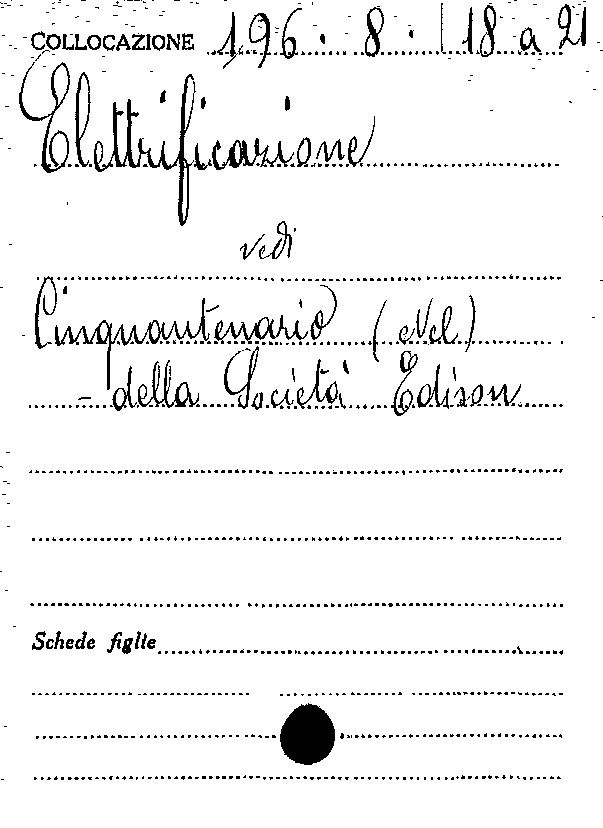 COLLOCAZIONE 196 . 8 . | 18 a 21
Elettrificazione
vedi
Cinquantenario (Nel)
- della Società Edison
Schede figlie